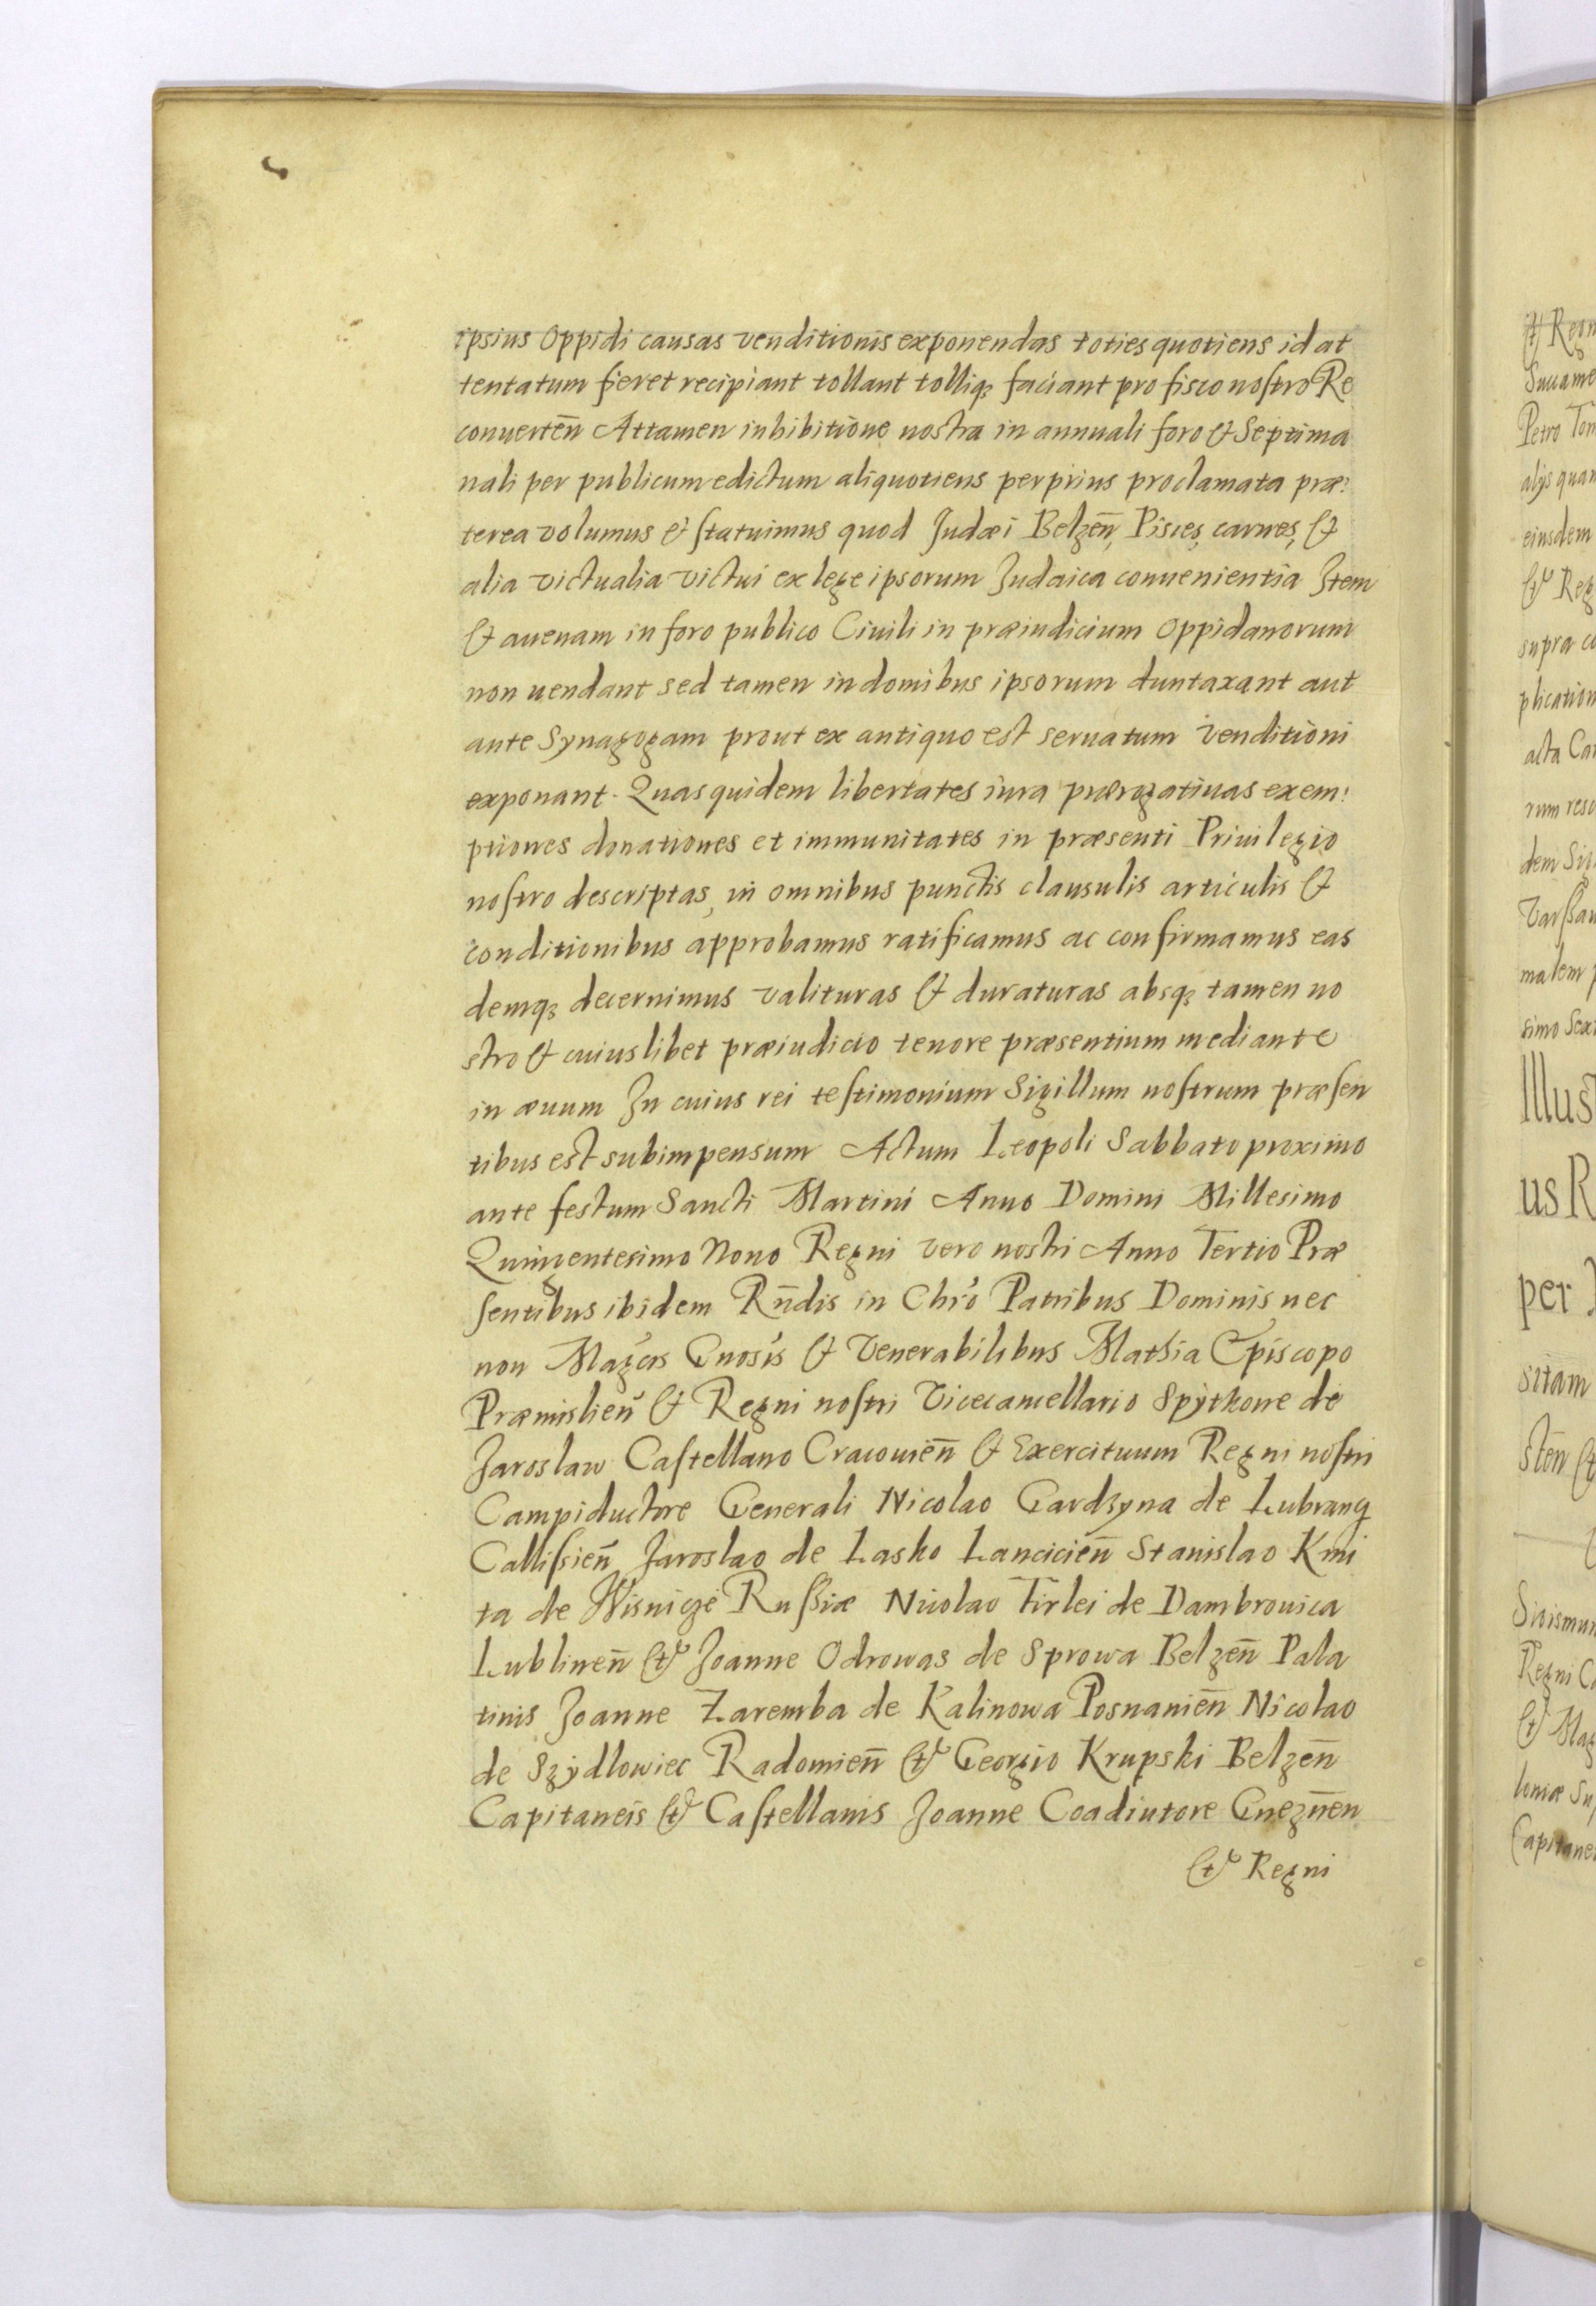 ipsius Oppidi causas venditionis exponendas toties quotiens id at
tentatum fieret recipiant tollant tolliq; faciant pro fisco nostro Re
conuerteñ Attamen inhibitione nostra in annuali foro & Septima
nali per publicum edictum aliquotiens perprius proclamata præ:
terea volumus et statuimus quod Judæi Belzeñ, Pisces, carnes, &
alia victualia victui ex lege ipsorum Judaica conuenientia Item
& auenam in foro publico Ciuili in præiudicium Oppidanorum
non uendant sed tamen in domibus ipsorum duntaxant aut
ante Synagogam prout ex antiquo est seruatum Venditioni
exponant. Quasquidem libertates iura prærogatiuas exem:
ptiones donationes et immunitates in præsenti Priuilegio
nostro descriptas, in omnibus punctis clausulis articulis &
conditionibus approbamus ratificamus ac confirmamus eas
demq; decernimus valituras & duraturas absq; tamen no
stro & cuiuslibet præiudicio tenore præsentium mediante
in æuum In cuius rei testimonium Sigillum nostrum præsen
tibus est subimpensum Actum Leopoli Sabbato proximo
ante festum Sancti Martini Anno Domini Millesimo
Quingentesimo Nono Regni vero nostri Anno Tertio Præ
sentibus ibidem Rñdis in Chr̃o Patribus Dominis nec
non Magcis Gnosis & Venerabilibus Mathia Episcopo
Præmislieñ & Regni nostri Vicecancellario Spythone de
Jaroslaw Castellano Cracouieñ & Exercituum Regni nostri
Campiductore Generali Nicolao Gardzyna de Lubrancz
Callisieñ Jaroslao de Lasko Lancicieñ Stanislao Kmi
ta de Wisnicze Russiæ Nicolao Firlei de Dambrouica
Lublineñ & Joanne Odrowas de Sprowa Belzeñ Pala
tinis Joanne Zaremba de Kalinowa Posnanieñ Nicolao
de Szydlowiec Radomieñ & Georgio Krupski Belzeñ
Capitaneis & Castellanis Joanne Coadiutore Gnezñen
& Regni